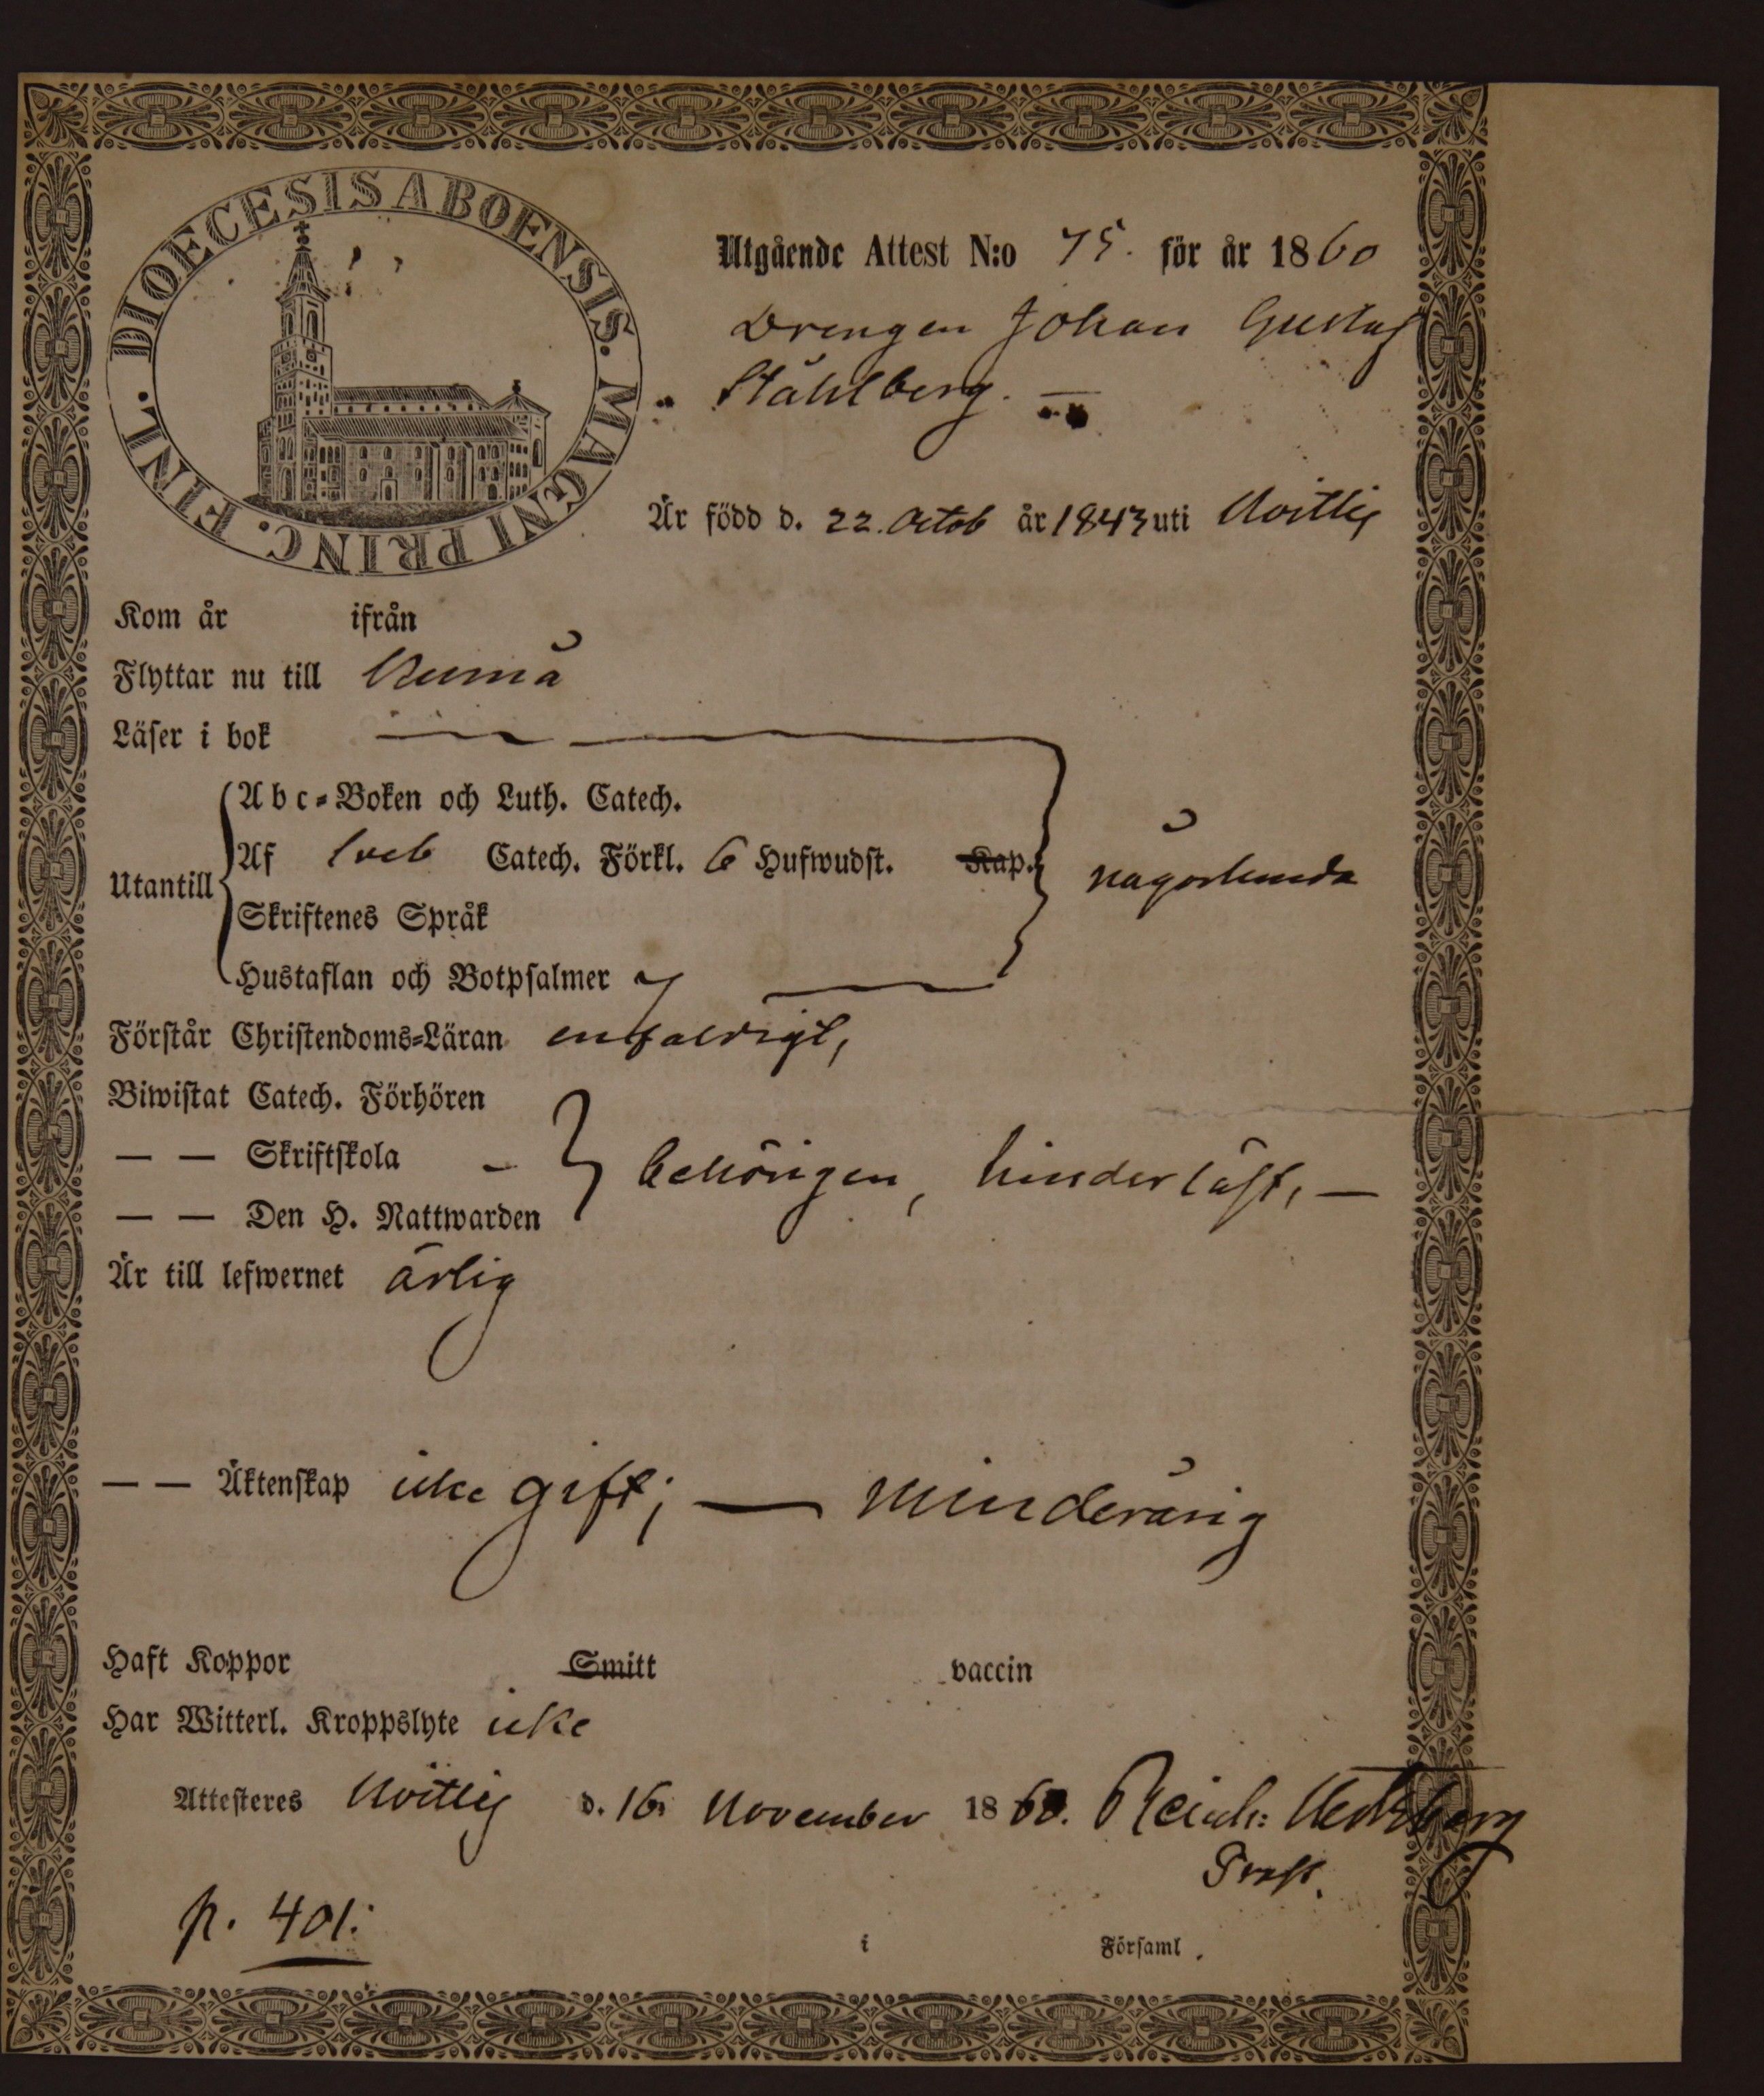 DIOECESIS ABOENSIS. MAGNI PRINC. FINL.
Utgående Attest N:o 75. för år 1860
Drengen Johan Gustaf
Ståhlberg. —
Är född d. 22. Octob år 1843 uti
Kom år ifrån
Flyttar nu till
Läser i bok
Abc-Boken och Luth. Catech.
Af Sveb Catech. Förkl. 6 Hufwudst. Kap.
Utantill någorlunda
Skriftenes Språk
Hustaflan och Botpsalmer
Förstår Christendoms-Läran enfaldigt,
Biwistat Catech. Förhören
— — Skriftskola behörigen,
— — Den H. Nattwarden
Är till lefwernet ärlig
— — Äktenskap icke gift; — minderårig
Haft Koppor Smitt vaccin
Har Witterl. Kroppslyte icke
Attesteres d. 16. November 1860.
Prost.
p. 401:
i Församl.